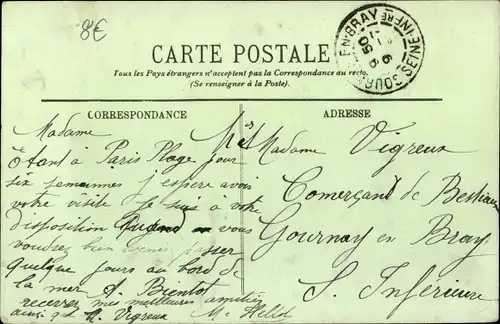 8€
CARTE POSTALE
Tous les Pays étrangers n'acceptent pas la Correspondance au recto.
(Se renseigner à la Poste).
EN-BRAY
SEINE-INFRE
CORRESPONDANCE
Madame
Étant à Paris Plage pour
six semaines j'espere avoir
votre visite Je suis a votre
disposition Quand vous
voudrez bien venir passer
quelque jours au bord de
la mer A Bientot
recevez mes meilleures amitiés
ainsi que M. Vigreux Me Hellot
ADRESSE
Madame Vigreux
Comerçant de Bestiaux
Gournay en Bray
S. Inferieure